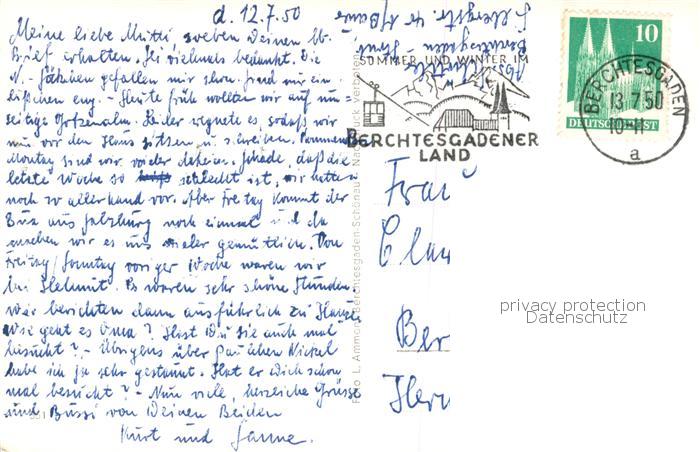 d. 12.7.50
Meine liebe Mutti, soeben Deinen lb.
Brief erhalten. Sei vielmals bedankt. Die
gefallen mir schon. Sind mir ein
bißchen eng. - Heute früh wollten wir auf
Leider regnete es, sodaß wir
nur vor dem Haus sitzen u. schreiben. Kommenden
Montag sind wir wieder daheim. Schade, daß die
letzte Woche so schlecht ist, wir hatten
noch so allerhand vor. Aber Freitag kommt der
Bua aus Salzburg noch einmal und da
machen wir es uns wieder gemütlich. Von
Freitag/Sonntag voriger Woche waren wir
bei Helmut. Es waren sehr schöne Stunden.
Wir berichten dann ausführlich zu Hause.
Wie geht es Oma? Hast Du sie auch mal
besucht? - Übrigens über Paulchen Nickel
habe ich ja sehr gestaunt. Hat er Dich schon
mal besucht? - Nun viele, herzliche Grüsse
und Bussi von Deinen Beiden
Kurt und Hanne.
Foto L. Ammon, Berchtesgaden-Schönau Nachdruck verboten
SOMMER UND WINTER IM
BERCHTESGADENER
LAND
10
DEUTSCHE POST
BERCHTESGADEN
13.7.50
10-11
a
Frau
Clau
Ber
Herr
privacy protection
Datenschutz